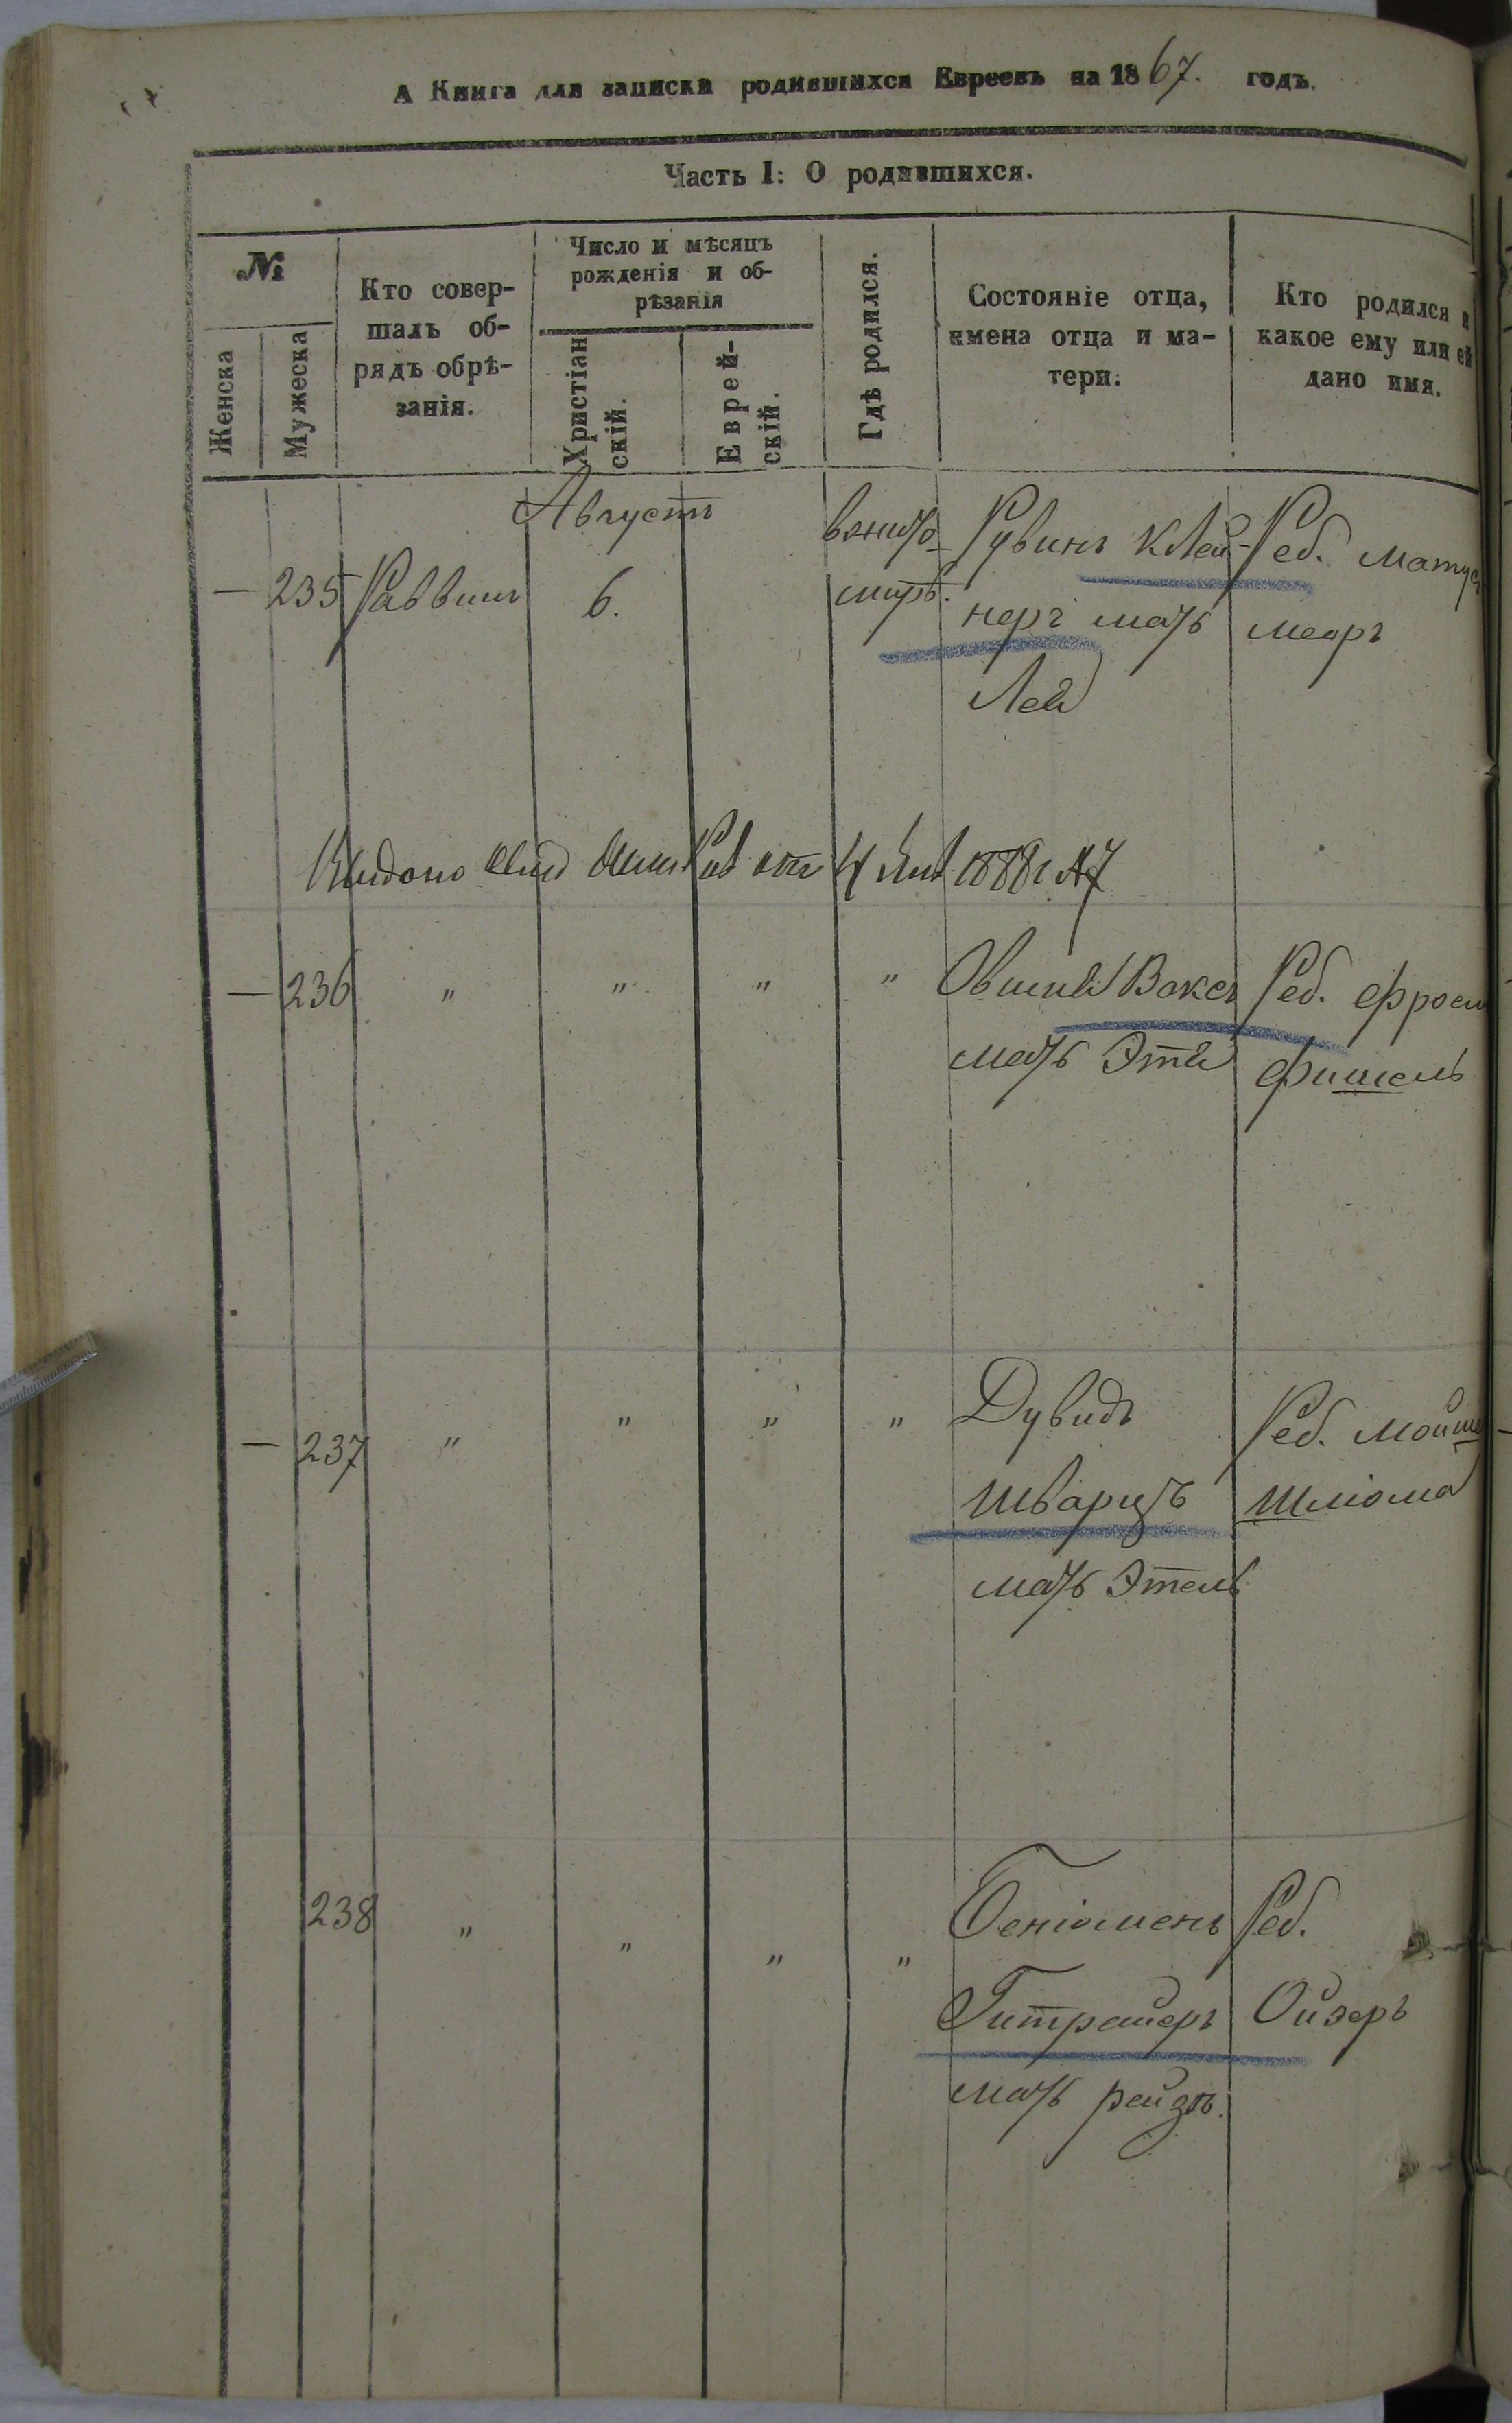 А Книга для записки родившихся Евреевъ на 1867. годъ.
Часть I: О родившихся.
№
Женска
Мужеска
Кто совер-
шалъ об-
рядъ обрѣ-
занія.
Число и мѣсяцъ
рожденія и об-
рѣзанія
Христіан
скій.
Еврей-
скій.
Гдѣ родился.
Состояніе отца,
имена отца и ма-
тери.
Кто родился и
какое ему или ей
дано имя.
Августъ
— 235 Раввинъ 6.
вжито-
миръ.
Рувинъ Клей-
неръ мать
Лея
Реб. Матус
меоръ
от 4 Янв 1888 г №7
— 236 " " " "
Овшия Ваксъ
мать Эти
Реб. Фроем
Фишель
— 237 " " " "
Дувидъ
Шварцъ
мать Этель
Реб. Мойше
Шліома
238 " " " "
Беніоменъ
Гитраеръ
мать Рейзя.
Реб.
Ойзеръ